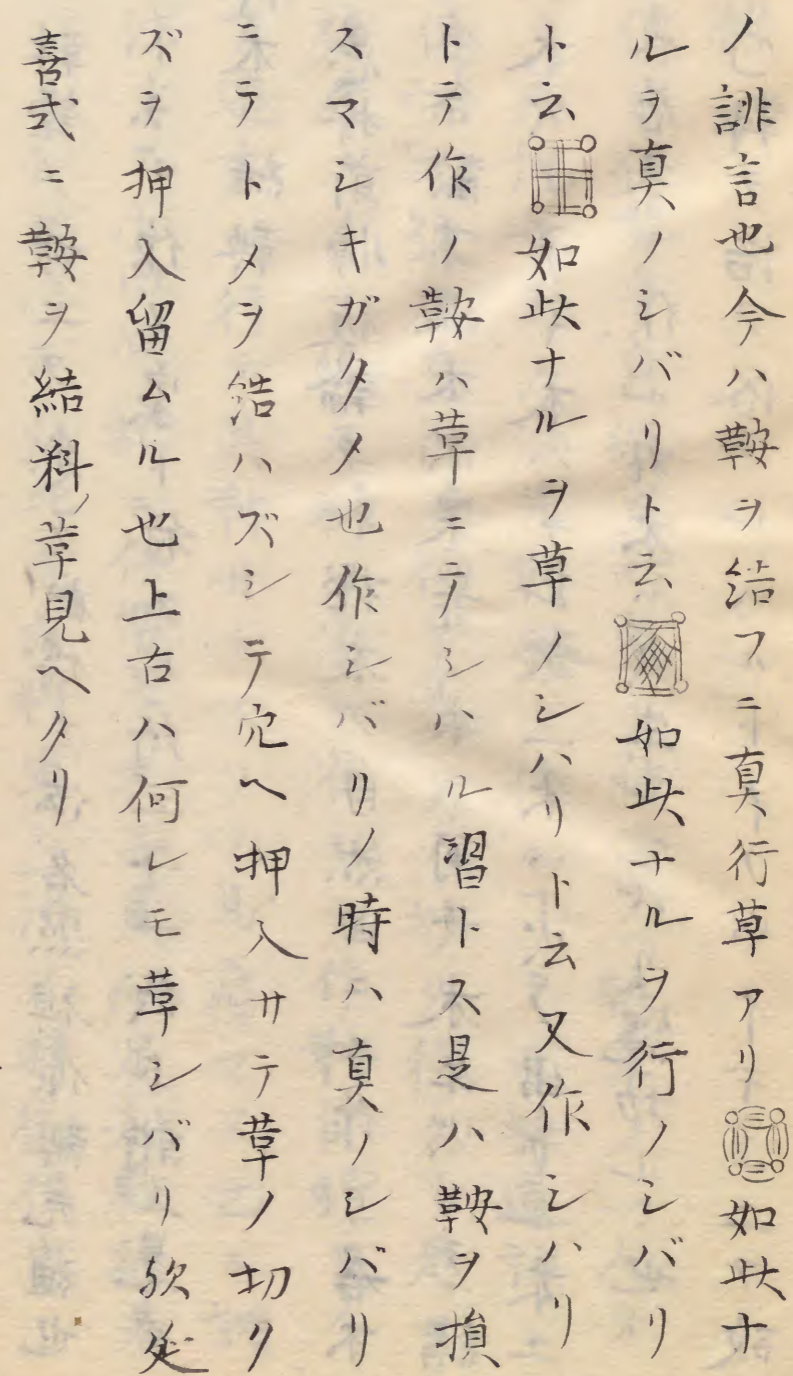 ノ誹言也今ハ鞍ヲ結フニ真行草アリ如此ナ
ルヲ真ノシバリト云如此ナルヲ行ノシバリ
ト云如此ナルヲ草ノシハリト云又作シハリ
トテ作ノ鞍ハ革ニテシハル習トス是ハ鞍ヲ損
スマシキガタメ也作シバリノ時ハ真ノシバリ
ニテトメヲ結ハズシテ穴ヘ押入サテ革ノ切ク
ズヲ押入留ムル也上古ハ何レモ革シバリ欤延
喜式ニ鞍ヲ結料ノ革見ヘタリ